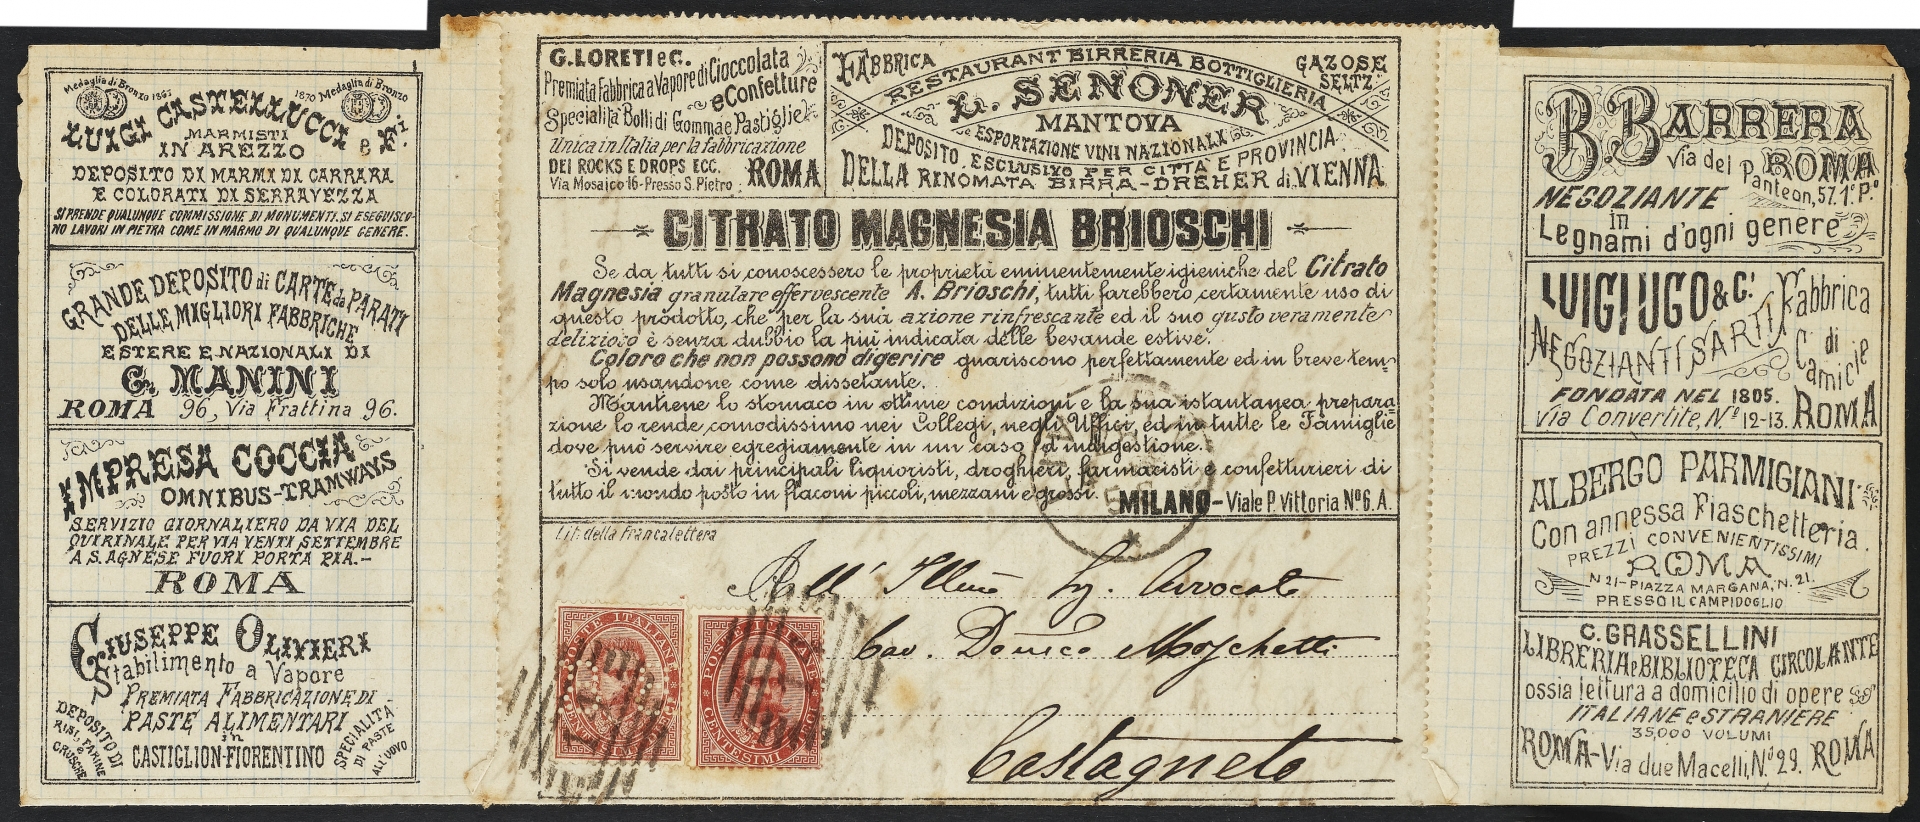 Medaglia di Bronzo 1870 Medaglia di Bronzo
LUIGI CASTELLUCCI & Fi.
MARMISTI
IN AREZZO
DEPOSITO DI MARMI DI CARRARA
E COLORATI DI SERRAVEZZA
SI PRENDE QUALUNQUE COMMISSIONE DI MONUMENTI. SI ESEGUISCO-
NO LAVORI IN PIETRA COME IN MARMO DI QUALUNQUE GENERE.
GRANDE DEPOSITO di CARTE da PARATI
DELLE MIGLIORI FABBRICHE
ESTERE E NAZIONALI DI
G. MANINI
ROMA 96, Via Frattina 96.
IMPRESA COCCIA
OMNIBUS-TRAMWAYS
SERVIZIO GIORNALIERO DA VIA DEL
QUIRINALE PER VIA VENTI SETTEMBRE
A S. AGNESE FUORI PORTA PIA.-
ROMA
GIUSEPPE OLIVIERI
Stabilimento a Vapore
PREMIATA FABBRICAZIONE DI
PASTE ALIMENTARI
in
CASTIGLION-FIORENTINO
DEPOSITO DI
RISI, FARINE
e
CRUSCHE
SPECIALITÀ
DI PASTE
ALL'UOVO
G. LORETI e C.
Premiata Fabbrica a Vapore di Cioccolata
e Confetture
Specialità Bolli di Gomma e Pastiglie
Unica in Italia per la fabbricazione
DEI ROCKS E DROPS ECC.
Via Mosaico 16-Presso S. Pietro ROMA
FABBRICA
GAZOSE
SELTZ
RESTAURANT BIRRERIA BOTTIGLIERIA
L. SENONER
MANTOVA
e ESPORTAZIONE VINI NAZIONALI
DEPOSITO ESCLUSIVO PER CITTÀ E PROVINCIA
DELLA RINOMATA BIRRA-DREHER di VIENNA
CITRATO MAGNESIA BRIOSCHI
Se da tutti si conoscessero le proprietà eminentemente igieniche del Citrato
Magnesia granulare effervescente A. Brioschi, tutti farebbero certamente uso di
questo prodotto, che per la sua azione rinfrescante ed il suo gusto veramente
delizioso è senza dubbio la più indicata delle bevande estive.
Coloro che non possono digerire guariscono perfettamente ed in breve tem-
po solo usandone come dissetante.
Mantiene lo stomaco in ottime condizioni e la sua istantanea prepara-
zione lo rende comodissimo nei Collegi, negli Uffici, ed in tutte le Famiglie
dove può servire egregiamente in un caso d'indigestione.
Si vende dai principali liquoristi, droghieri, farmacisti e confetturieri di
tutto il mondo posto in flaconi piccoli, mezzani e grossi. MILANO - Viale P. Vittoria No 6. A.
Lit: della Francalettera
All' Illmo Sig. Avvocato
Cav. Domco Moschetti
Castagneto
POSTE ITALIANE
CENTESIMI DIECI
POSTE ITALIANE
CENTESIMI DIECI
B. BARRERA
Via del Panteon, 57. 1o. Po. ROMA
NEGOZIANTE
in
Legnami d'ogni genere
LUIGI UGO & C.i
NEGOZIANTI SARTI
Fabbrica
di
Camicie
FONDATA NEL 1805.
Via Convertite, No 12-13. ROMA
ALBERGO PARMIGIANI
Con annessa Fiaschetteria.
PREZZI CONVENIENTISSIMI
ROMA
N 21-PIAZZA MARGANA, N. 21.
PRESSO IL CAMPIDOGLIO
C. GRASSELLINI
LIBRERIA e BIBLIOTECA CIRCOLANTE
ossia lettura a domicilio di opere
ITALIANE e STRANIERE
35,000 VOLUMI
ROMA-Via due Macelli, No 29. ROMA